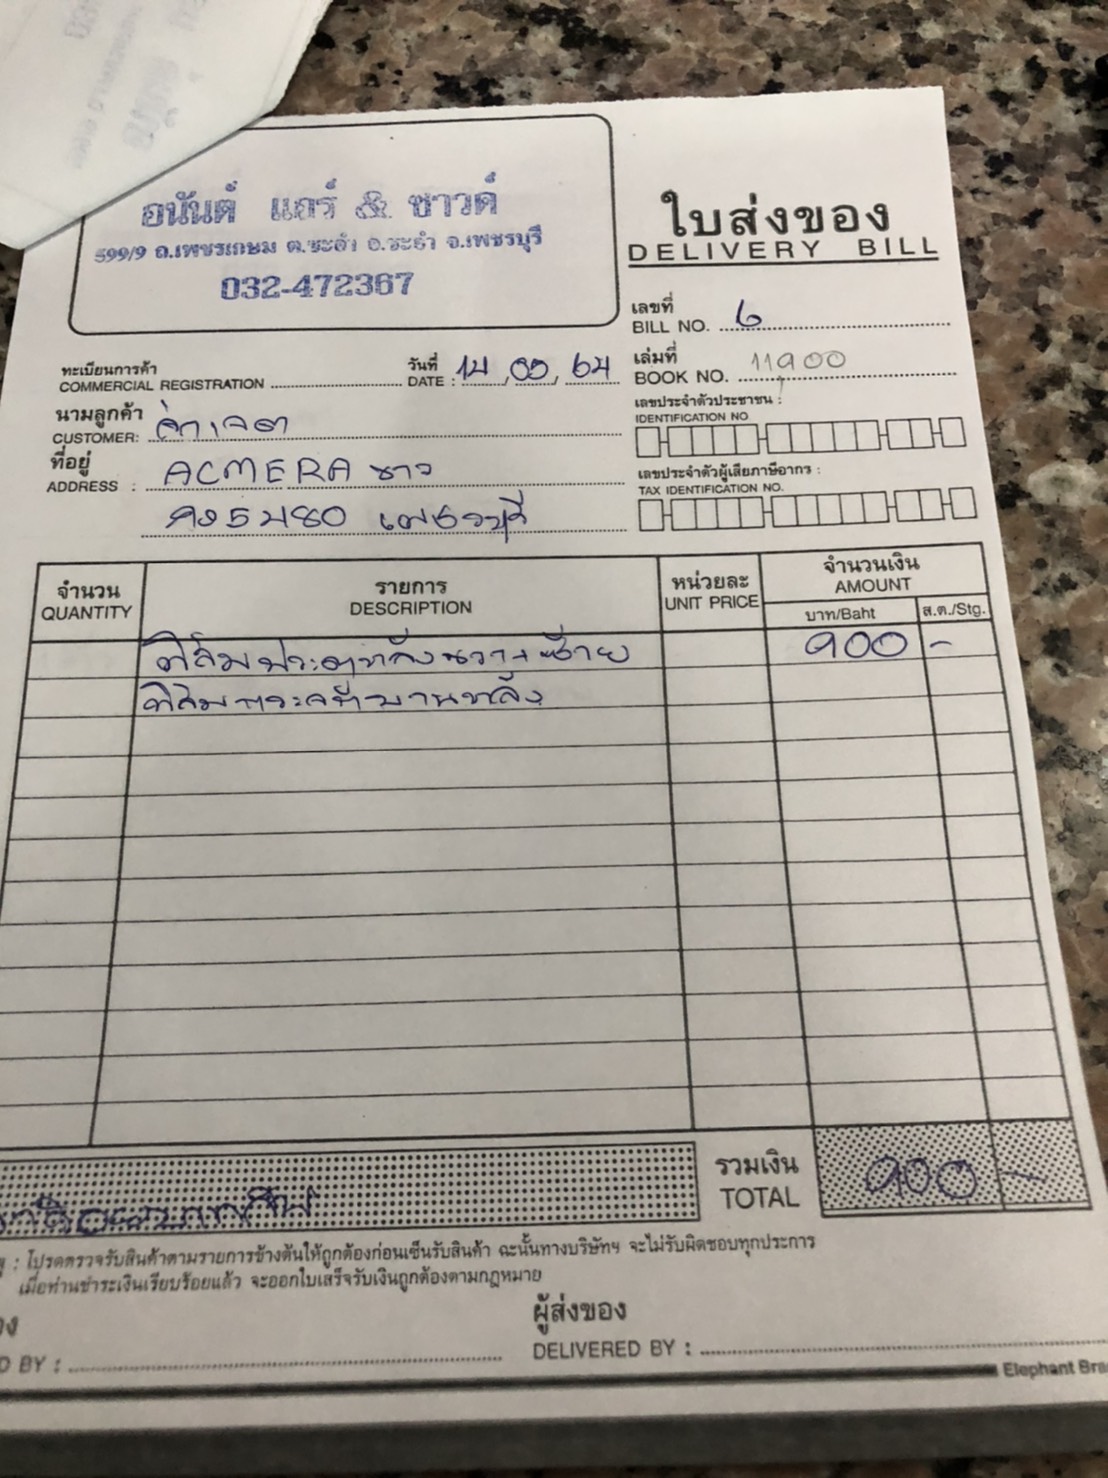 อนันต์ แอร์ & ซาวด์
599/9 ถ.เพชรเกษม ต.ชะอำ อ.ชะอำ จ.เพชรบุรี
032-472367
ใบส่งของ
DELIVERY BILL
เลขที่
BILL NO. 6
ทะเบียนการค้า
COMMERCIAL REGISTRATION
วันที่
DATE :
64
เล่มที่
BOOK NO. 11900
นามลูกค้า
CUSTOMER:
เลขประจำตัวประชาชน :
IDENTIFICATION NO
ที่อยู่
ADDRESS : ACMERA ขาว
5480 เพชรบุรี
เลขประจำตัวผู้เสียภาษีอากร :
TAX IDENTIFICATION NO.
จำนวน
QUANTITY
รายการ
DESCRIPTION
หน่วยละ
UNIT PRICE
จำนวนเงิน
AMOUNT
บาท/Baht
ส.ต./Stg.
ฟิล์มประตูหลังขวา+ซ้าย 900 -
ฟิล์มกระจกบานหลัง
รวมเงิน
TOTAL
900 -
: โปรดตรวจรับสินค้าตามรายการข้างต้นให้ถูกต้องก่อนเซ็นรับสินค้า ฉะนั้นทางบริษัทฯ จะไม่รับผิดชอบทุกประการ
เมื่อท่านชำระเงินเรียบร้อยแล้ว จะออกใบเสร็จรับเงินถูกต้องตามกฎหมาย
ผู้ส่งของ
D BY :
DELIVERED BY :
Elephant Bra